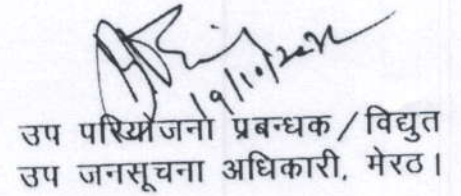 19/10/2022
उप परियोजना प्रबन्धक / विद्युत
उप जनसूचना अधिकारी, मेरठ।